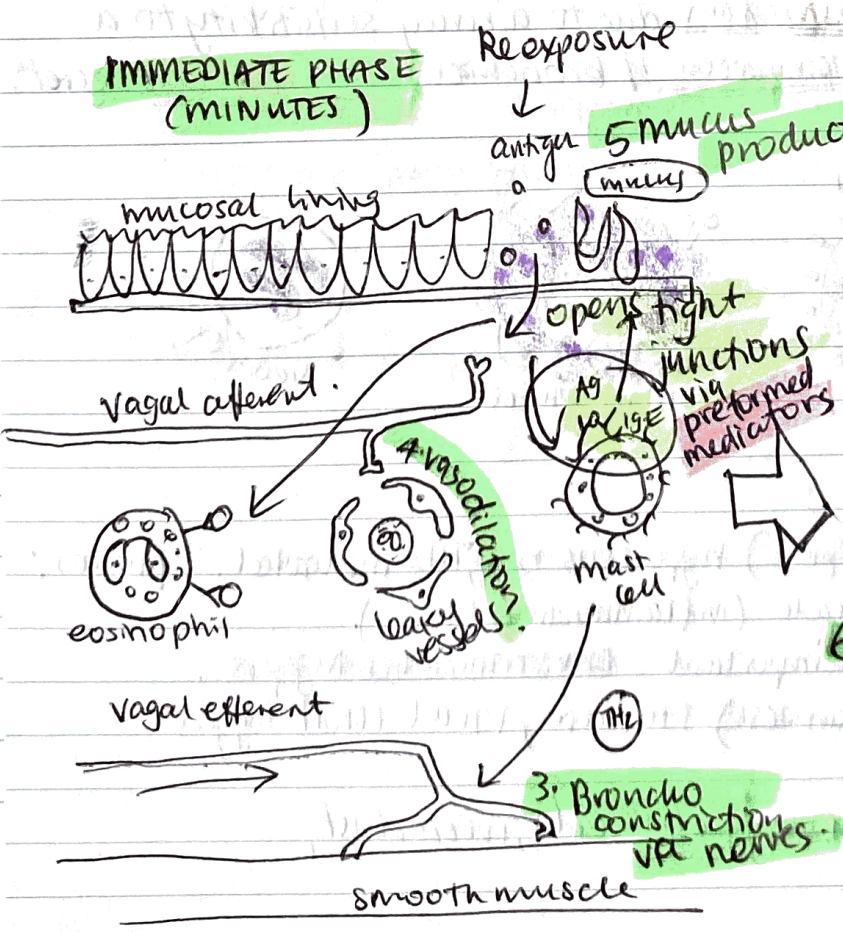 IMMEDIATE PHASE
(MINUTES)
Reexposure
antigen
5 mucus
produc
mucus
mucosal lining
opens tight
junctions
via
preformed
mediators
Ag
IgE
vagal afferent.
4. vasodilation
eosinophil
leaky
vessels.
mast
cell
6
vagal efferent
TH2
3. Broncho
constriction
via nerves.
smooth muscle